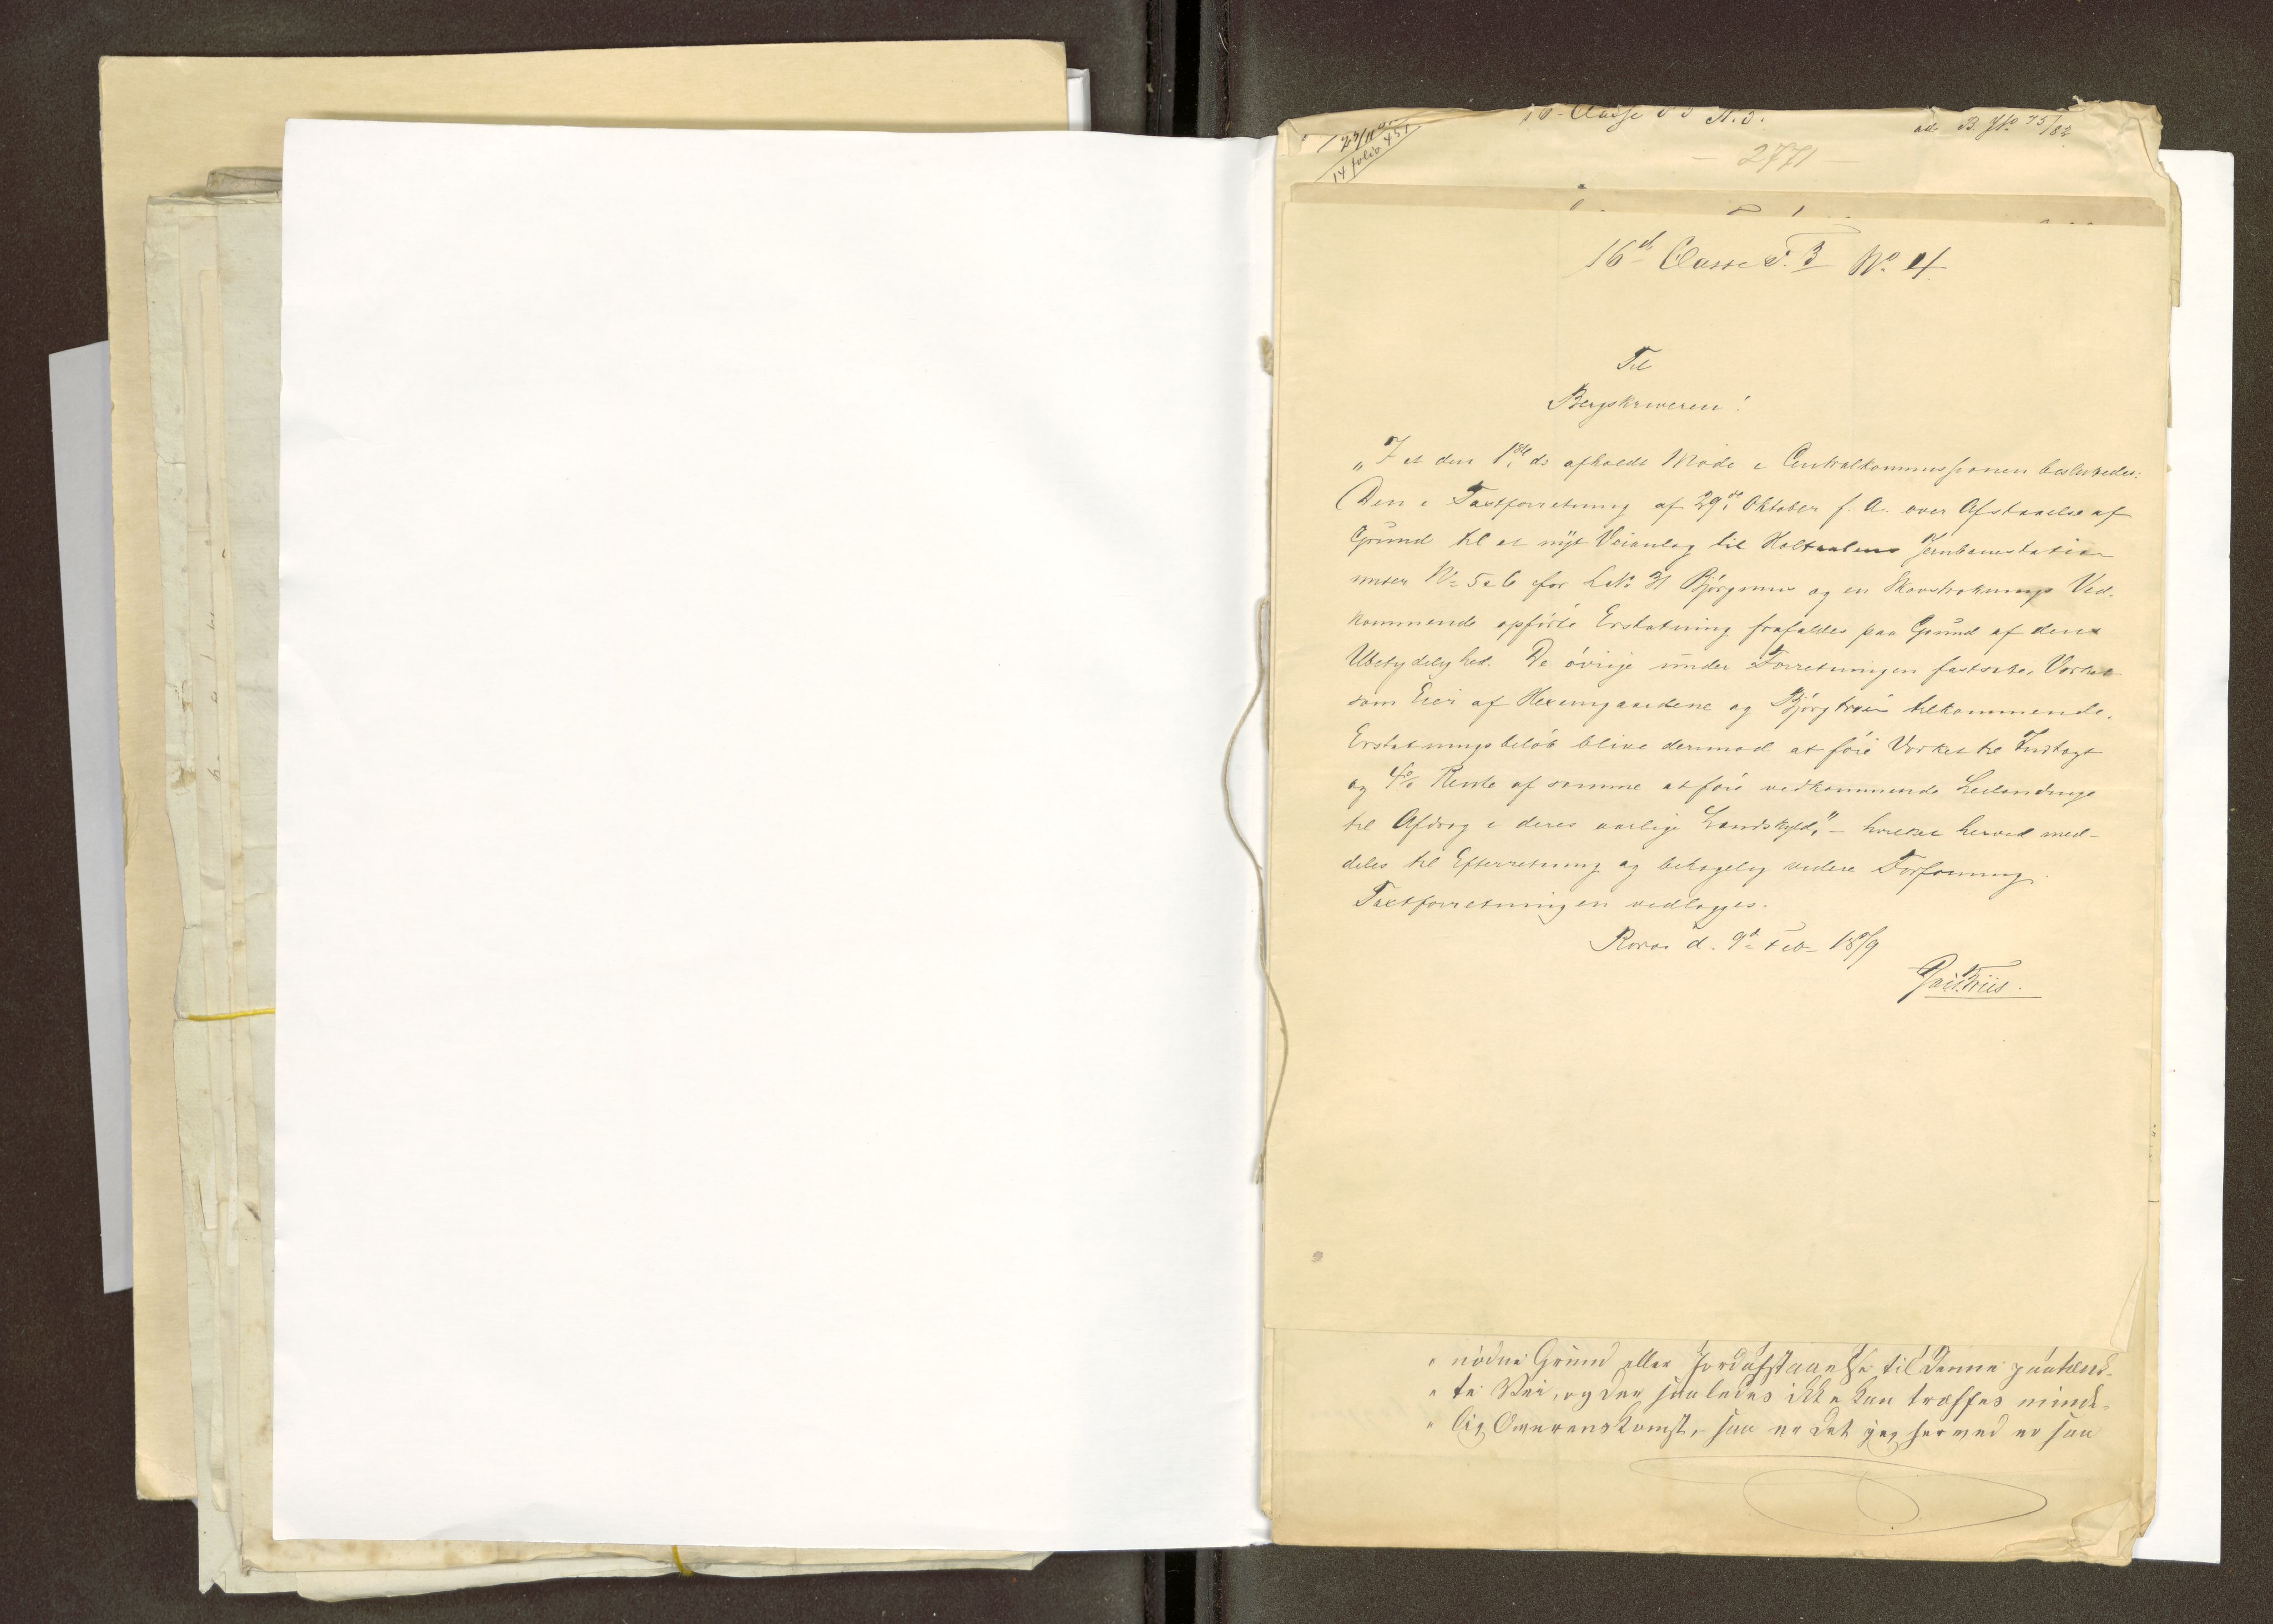 16 Classe
ad B J№ 75/82
14 folio 451
- 2771 -
16de Classe S. 3 No. 4
Til
Bergskriveren!
"I et den 1ste ds afholdt Møde i Centralkommissionen besluttedes:
Den i Taxtforretning af 29de Oktober f. A. over Afstaaelse af
Grund til et nyt Veianlæg til Holtaalens Jernbanestation
under No 5 & 6 for L.No 31 Bjørgmus og en Skovstrækning Ved-
kommende opførte Erstatning frafaldes paa Grund af dens
Ubetydelighed. De øvrige under Forretningen fastsatte, Værket
som Eier af Hexemgaardene og Bjørgtrøen tilkommende,
Erstatningsbeløb blive derimod at føre Værket til Indtægt
og 4% Rente af samme at føre vedkommende Leilændinge
til Afdrag i deres aarlige Landskyld," - hvilket herved med-
deles til Efterretning og behagelig videre Forføining.
Taxtforretningen vedlægges.
Røros d. 9de Feb. 1879
"nødne Grund eller Jordafstaaelse til denne paatænk-
"te Vei, og der saaledes ikke kan træffes minde-
"lig Overenskomst, saa er det jeg herved er saa